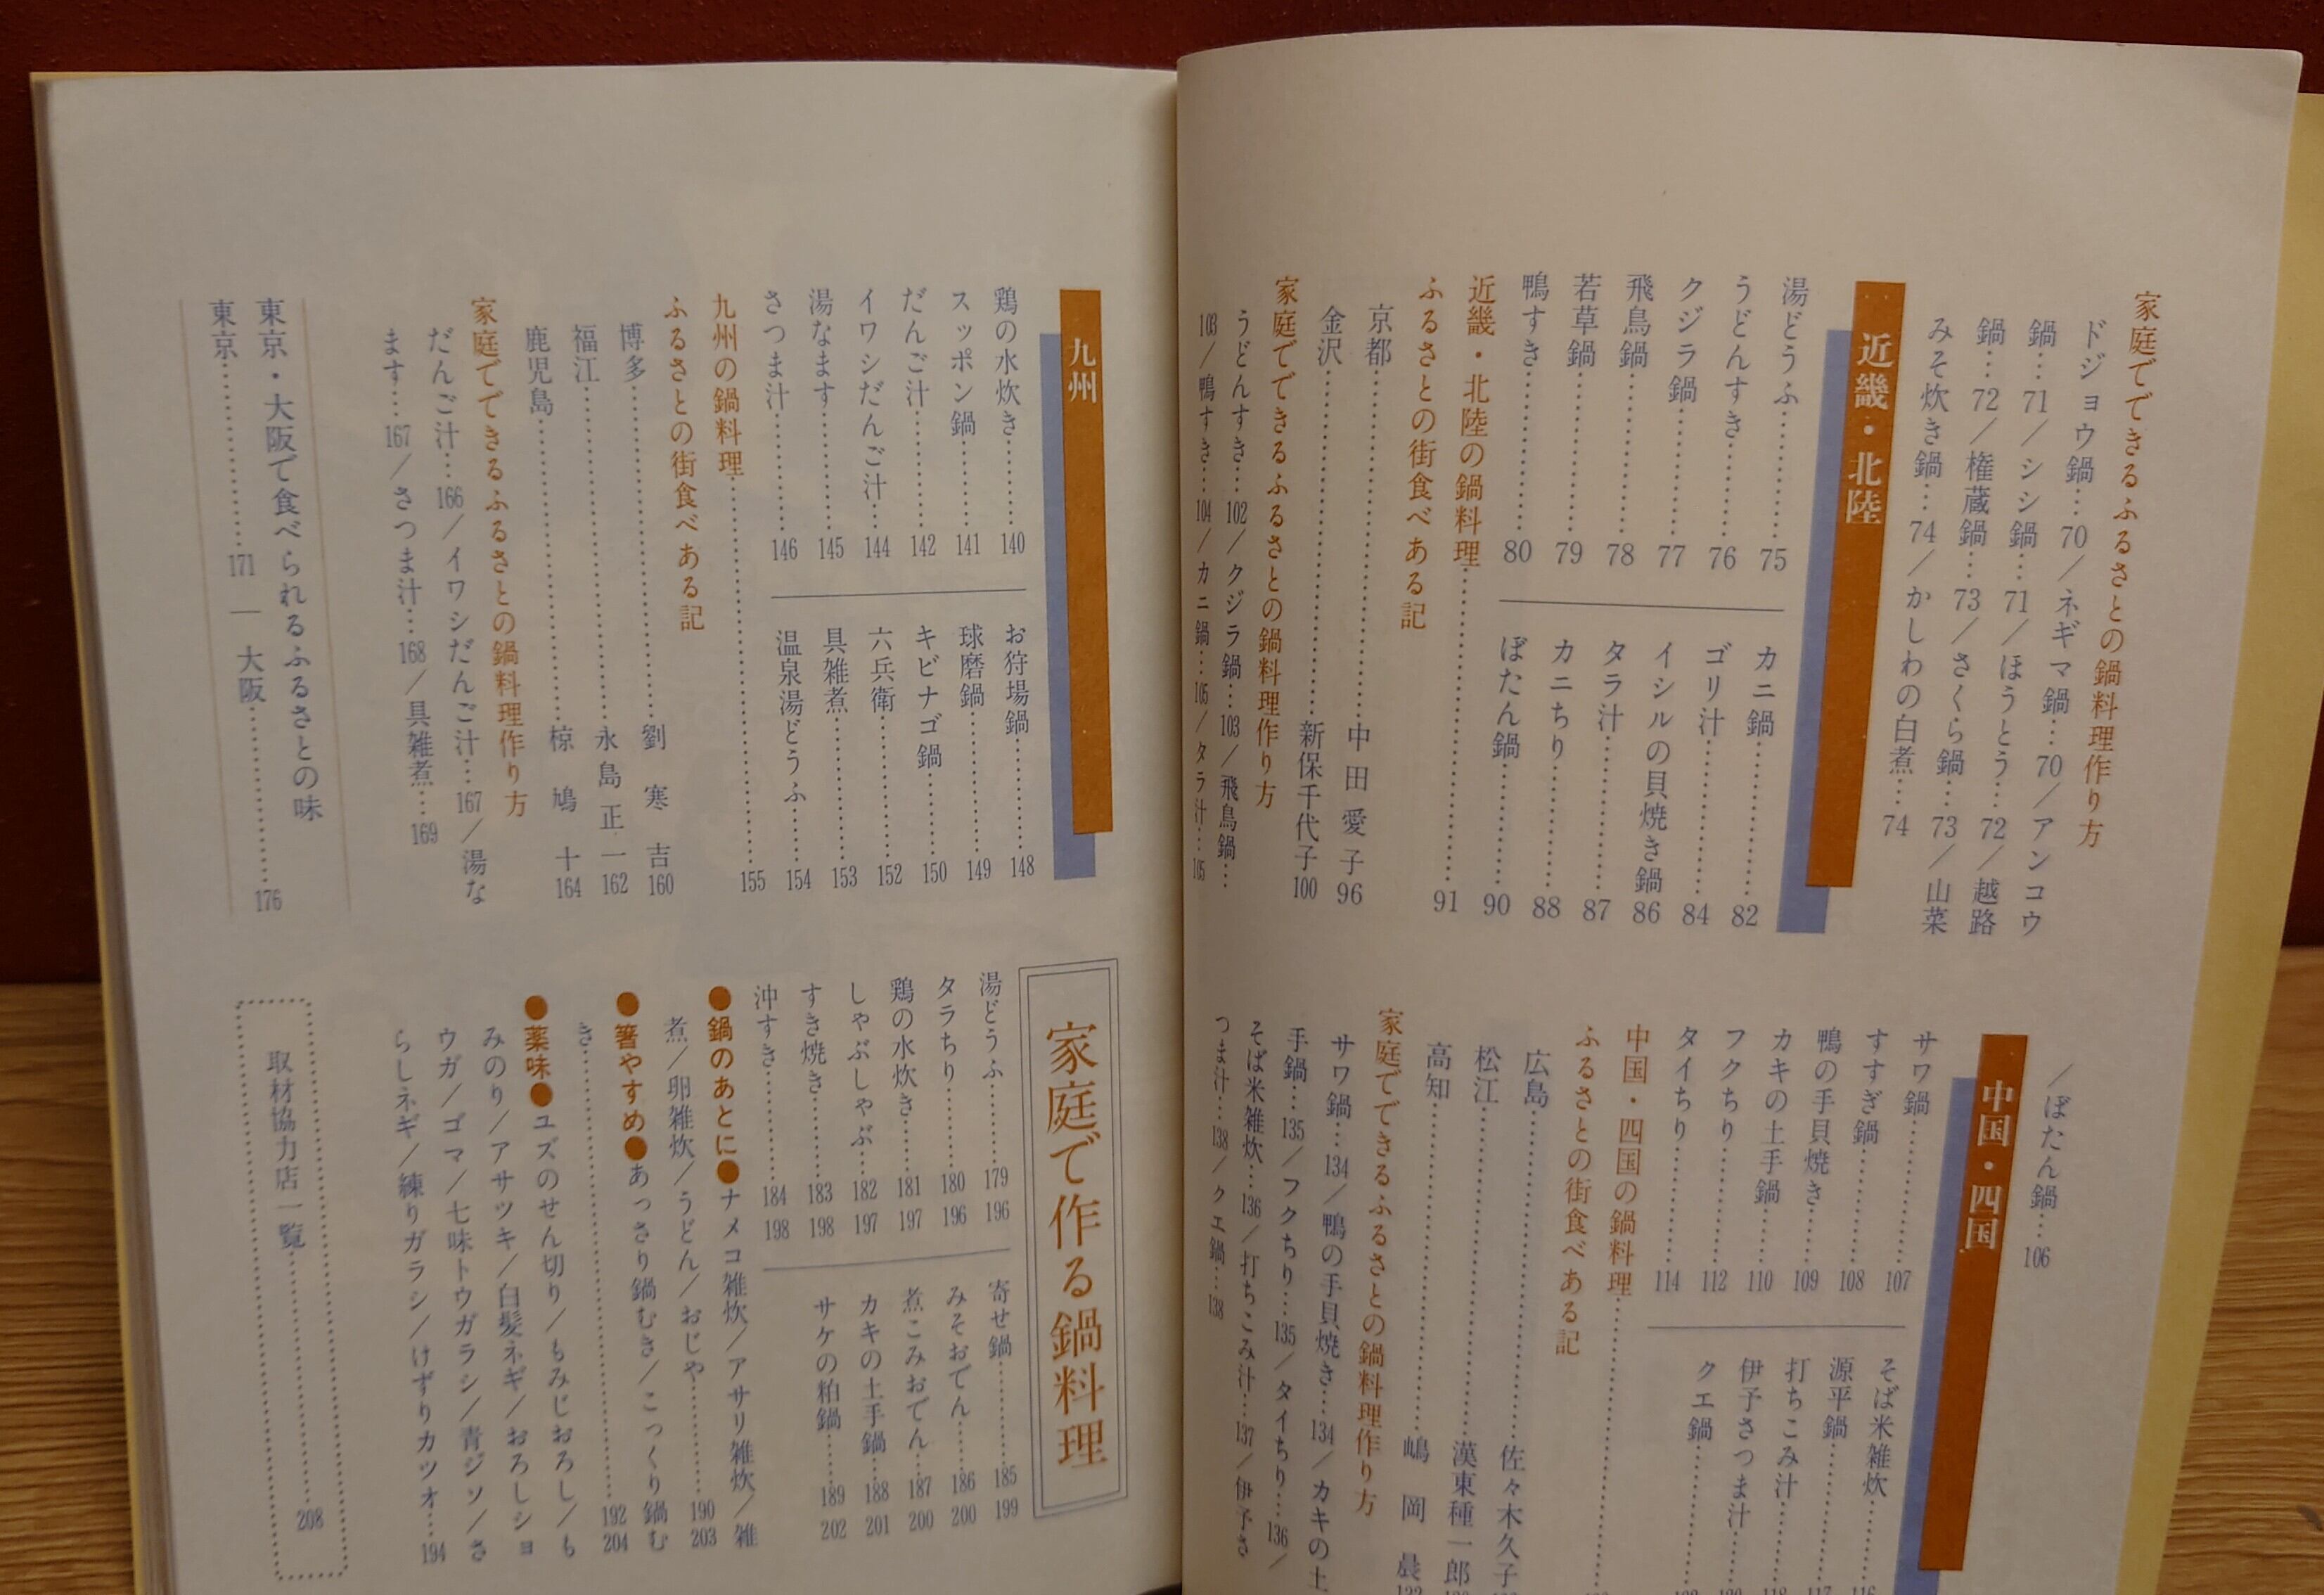 家庭でできるふるさとの鍋料理作り方
ドジョウ鍋…70／ネギマ鍋…70／アンコウ
鍋…71／シシ鍋…71／ほうとう…72／越路
鍋…72／権蔵鍋…73／さくら鍋…73／山菜
みそ炊き鍋…74／かしわの白煮…74
近畿・北陸
湯どうふ…75
うどんすき…76
クジラ鍋…77
飛鳥鍋…78
若草鍋…79
鴨すき…80
カニ鍋…82
ゴリ汁…84
イシルの貝焼き鍋…86
タラ汁…87
カニちり…88
ぼたん鍋…90
近畿・北陸の鍋料理…91
ふるさとの街食べある記
京都…中田愛子 96
金沢…新保千代子 100
家庭でできるふるさとの鍋料理作り方
うどんすき…102／クジラ鍋…103／飛鳥鍋…
103／鴨すき…104／カニ鍋…105／タラ汁…105
／ぼたん鍋…106
中国・四国
サワ鍋…107
すすぎ鍋…108
鴨の手貝焼き…109
カキの土手鍋…110
フクちり…112
タイちり…114
そば米雑炊…116
源平鍋…117
打ちこみ汁…118
伊予さつま汁…
クエ鍋…
中国・四国の鍋料理…
ふるさとの街食べある記
広島…佐々木久子
松江…漢東種一郎
高知…嶋岡晨
家庭でできるふるさとの鍋料理作り方
サワ鍋…134／鴨の手貝焼き…134／カキの土
手鍋…135／フクちり…135／タイちり…136／
そば米雑炊…136／打ちこみ汁…137／伊予さ
つま汁…138／クエ鍋…138
九州
鶏の水炊き…140
スッポン鍋…141
だんご汁…142
イワシだんご汁…144
湯なます…145
さつま汁…146
お狩場鍋…148
球磨鍋…149
キビナゴ鍋…150
六兵衛…152
具雑煮…153
温泉湯どうふ…154
九州の鍋料理…155
ふるさとの街食べある記
博多…劉寒吉 160
福江…永島正一 162
鹿児島…椋鳩十 164
家庭でできるふるさとの鍋料理作り方
だんご汁…166／イワシだんご汁…167／湯な
ます…167／さつま汁…168／具雑煮…169
東京・大阪で食べられるふるさとの味
東京…171 ― 大阪…176
家庭で作る鍋料理
湯どうふ…179 196
タラちり…180 196
鶏の水炊き…181 197
しゃぶしゃぶ…182 197
すき焼き…183 198
沖すき…184 198
寄せ鍋…185 199
みそおでん…186 200
煮こみおでん…187 200
カキの土手鍋…188 201
サケの粕鍋…189 202
●鍋のあとに●ナメコ雑炊／アサリ雑炊／雑
煮／卵雑炊／うどん／おじや…190 203
●箸やすめ●あっさり鍋むき／こっくり鍋む
き…192 204
●薬味●ユズのせん切り／もみじおろし／も
みのり／アサツキ／白髪ネギ／おろしショ
ウガ／ゴマ／七味トウガラシ／青ジソ／さ
らしネギ／練りガラシ／けずりカツオ…194
取材協力店一覧…208